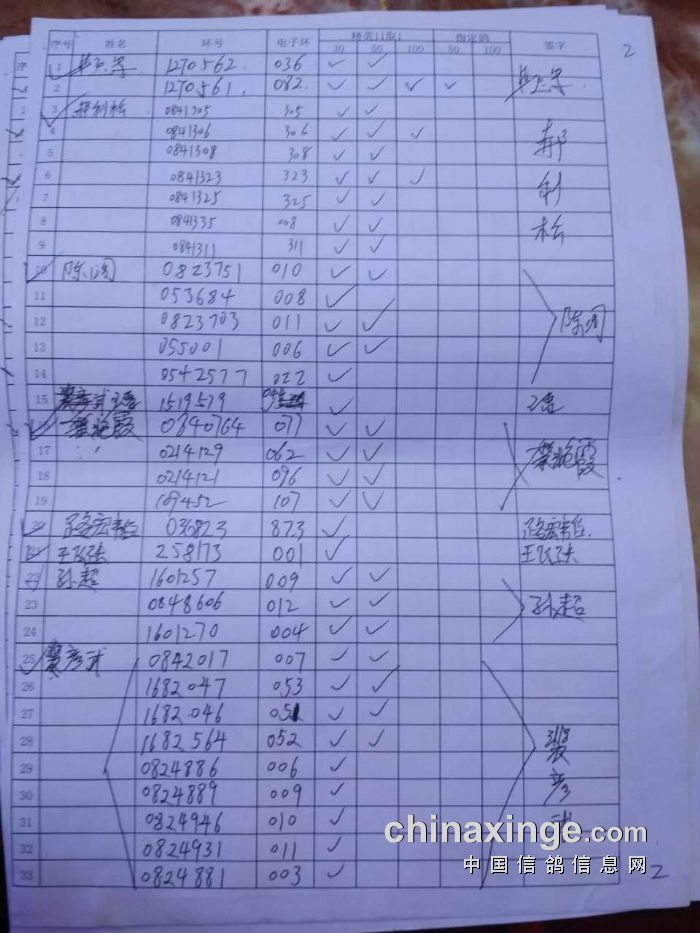 2
序号 姓名 环号 电子环 精英日取1 指定鸽 签字
30 50 100 50 100
1 1270562 036 ✓ ✓
2 1270561 082 ✓ ✓ ✓ ✓
3 郝利松 0841305 305 ✓ ✓
4 0841306 306 ✓ ✓ ✓ 郝
5 0841308 308 ✓ ✓
6 0841323 323 ✓ ✓ ✓ 利
7 0841325 325 ✓ ✓
8 0841335 008 ✓ ✓ 松
9 0841311 311 ✓ ✓
10 陈阔 0823751 010 ✓ ✓
11 053684 008 ✓
12 0823703 011 ✓ ✓ 陈阔
13 055001 006 ✓ ✓
14 0542577 022 ✓
15 1519519 ✓
16 0340764 077 ✓ ✓
17 0214129 062 ✓ ✓
18 0214121 096 ✓ ✓
19 109452 107 ✓ ✓
20 036823 873 ✓
21 258173 001 ✓
22 孙超 1601257 009 ✓ ✓
23 0848606 012 ✓ ✓ 孙超
24 1601270 004 ✓ ✓
25 0842017 007 ✓ ✓
26 1682047 053 ✓ ✓
27 1682046 051 ✓ ✓
28 1682564 052 ✓ ✓ 裴
29 0824886 006 ✓
30 0824889 009 ✓ 彦
31 0824946 010 ✓
32 0824931 011 ✓
33 0824881 003 ✓
2
chinaxinge.com
中国信鸽信息网